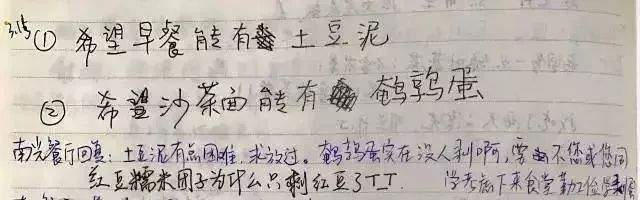 3.15 ① 希望早餐能有土豆泥
② 希望沙茶面能有鹌鹑蛋
南光餐厅回复：土豆泥有点困难，求放过。鹌鹑蛋实在没人剥啊，要不您或您同
学考虑下来食堂勤工俭学
红豆糯米团子为什么只剩红豆了TT.